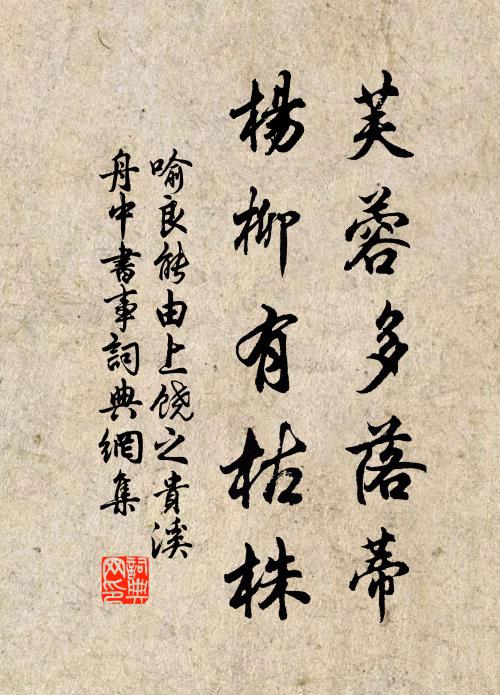 芙蓉多落蒂
楊柳有枯株
喻良能由上饒之貴溪
舟中書事詞典網集
詞典网印